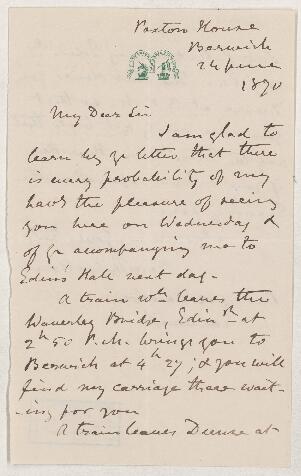 Paxton House
Berwick
24 June
1890
My Dear Sir
I am glad to
learn by yr letter that there
is every probability of my
havg the pleasure of seeing
you here on Wednesday &
of yr accompanying me to
Edin's Hall next day -
A train wh leaves the
Waverley Bridge, Edinrh at
2h 50 P.M. brings you to
Berwick at 4h 27; & you will
find my carriage there wait-
ing for you
A train leaves Dunse at